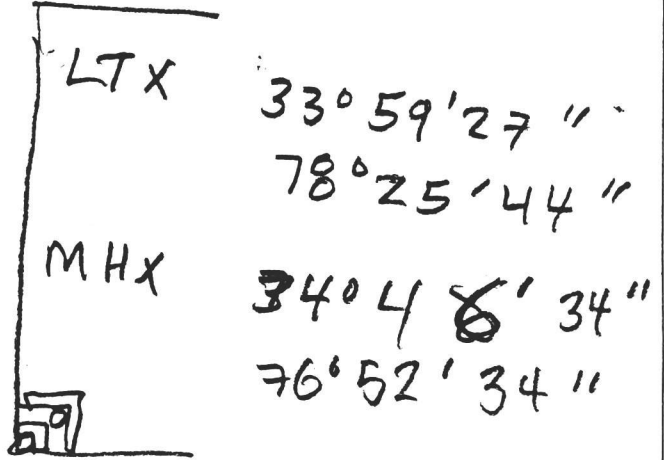 LTX 33°59'27"
78°25'44"
MHX 34°46'34"
76°52'34"